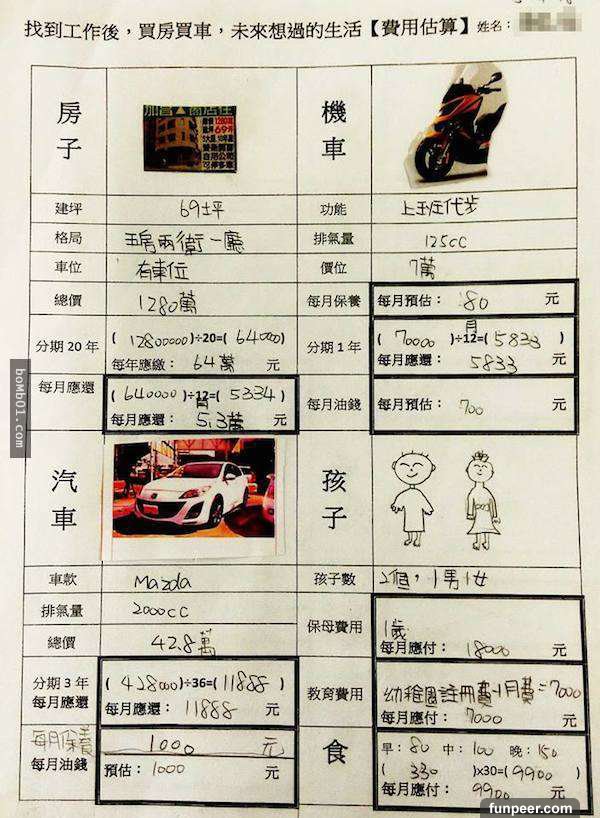 找到工作後，買房買車，未來想過的生活【費用估算】姓名：
房子
1280萬
69坪
機車
建坪 69坪 功能 上班代步
格局 五房兩衛一廳 排氣量 125cc
車位 有車位 價位 7萬
總價 1280萬 每月保養 每月預估： 80 元
分期 20 年 ( 12800000 )÷20=( 640000 ) 分期 1 年 ( 70000 )÷12月=( 5833 )
每年應繳： 64萬 元 每月應還： 5833 元
每月應還 ( 640000 )÷12月=( 5334 ) 每月油錢 每月預估： 700 元
每月應還： 5.3萬 元
汽車
孩子
車款 Mazda 孩子數 2個，1男1女
排氣量 2000cc 保母費用 1歲
總價 42.8萬 每月應付： 18000 元
分期 3 年 ( 428000 )÷36=( 11888 ) 教育費用 幼稚園註冊費+月費=7000
每月應還 每月應還： 11888 元 每月應付： 7000 元
每月保養 1000 元 食 早： 80 中： 100 晚： 150
每月油錢 預估： 1000 元 ( 330 )x30=( 9900 )
每月應付： 9900 元
boMb01.com
funpeer.com